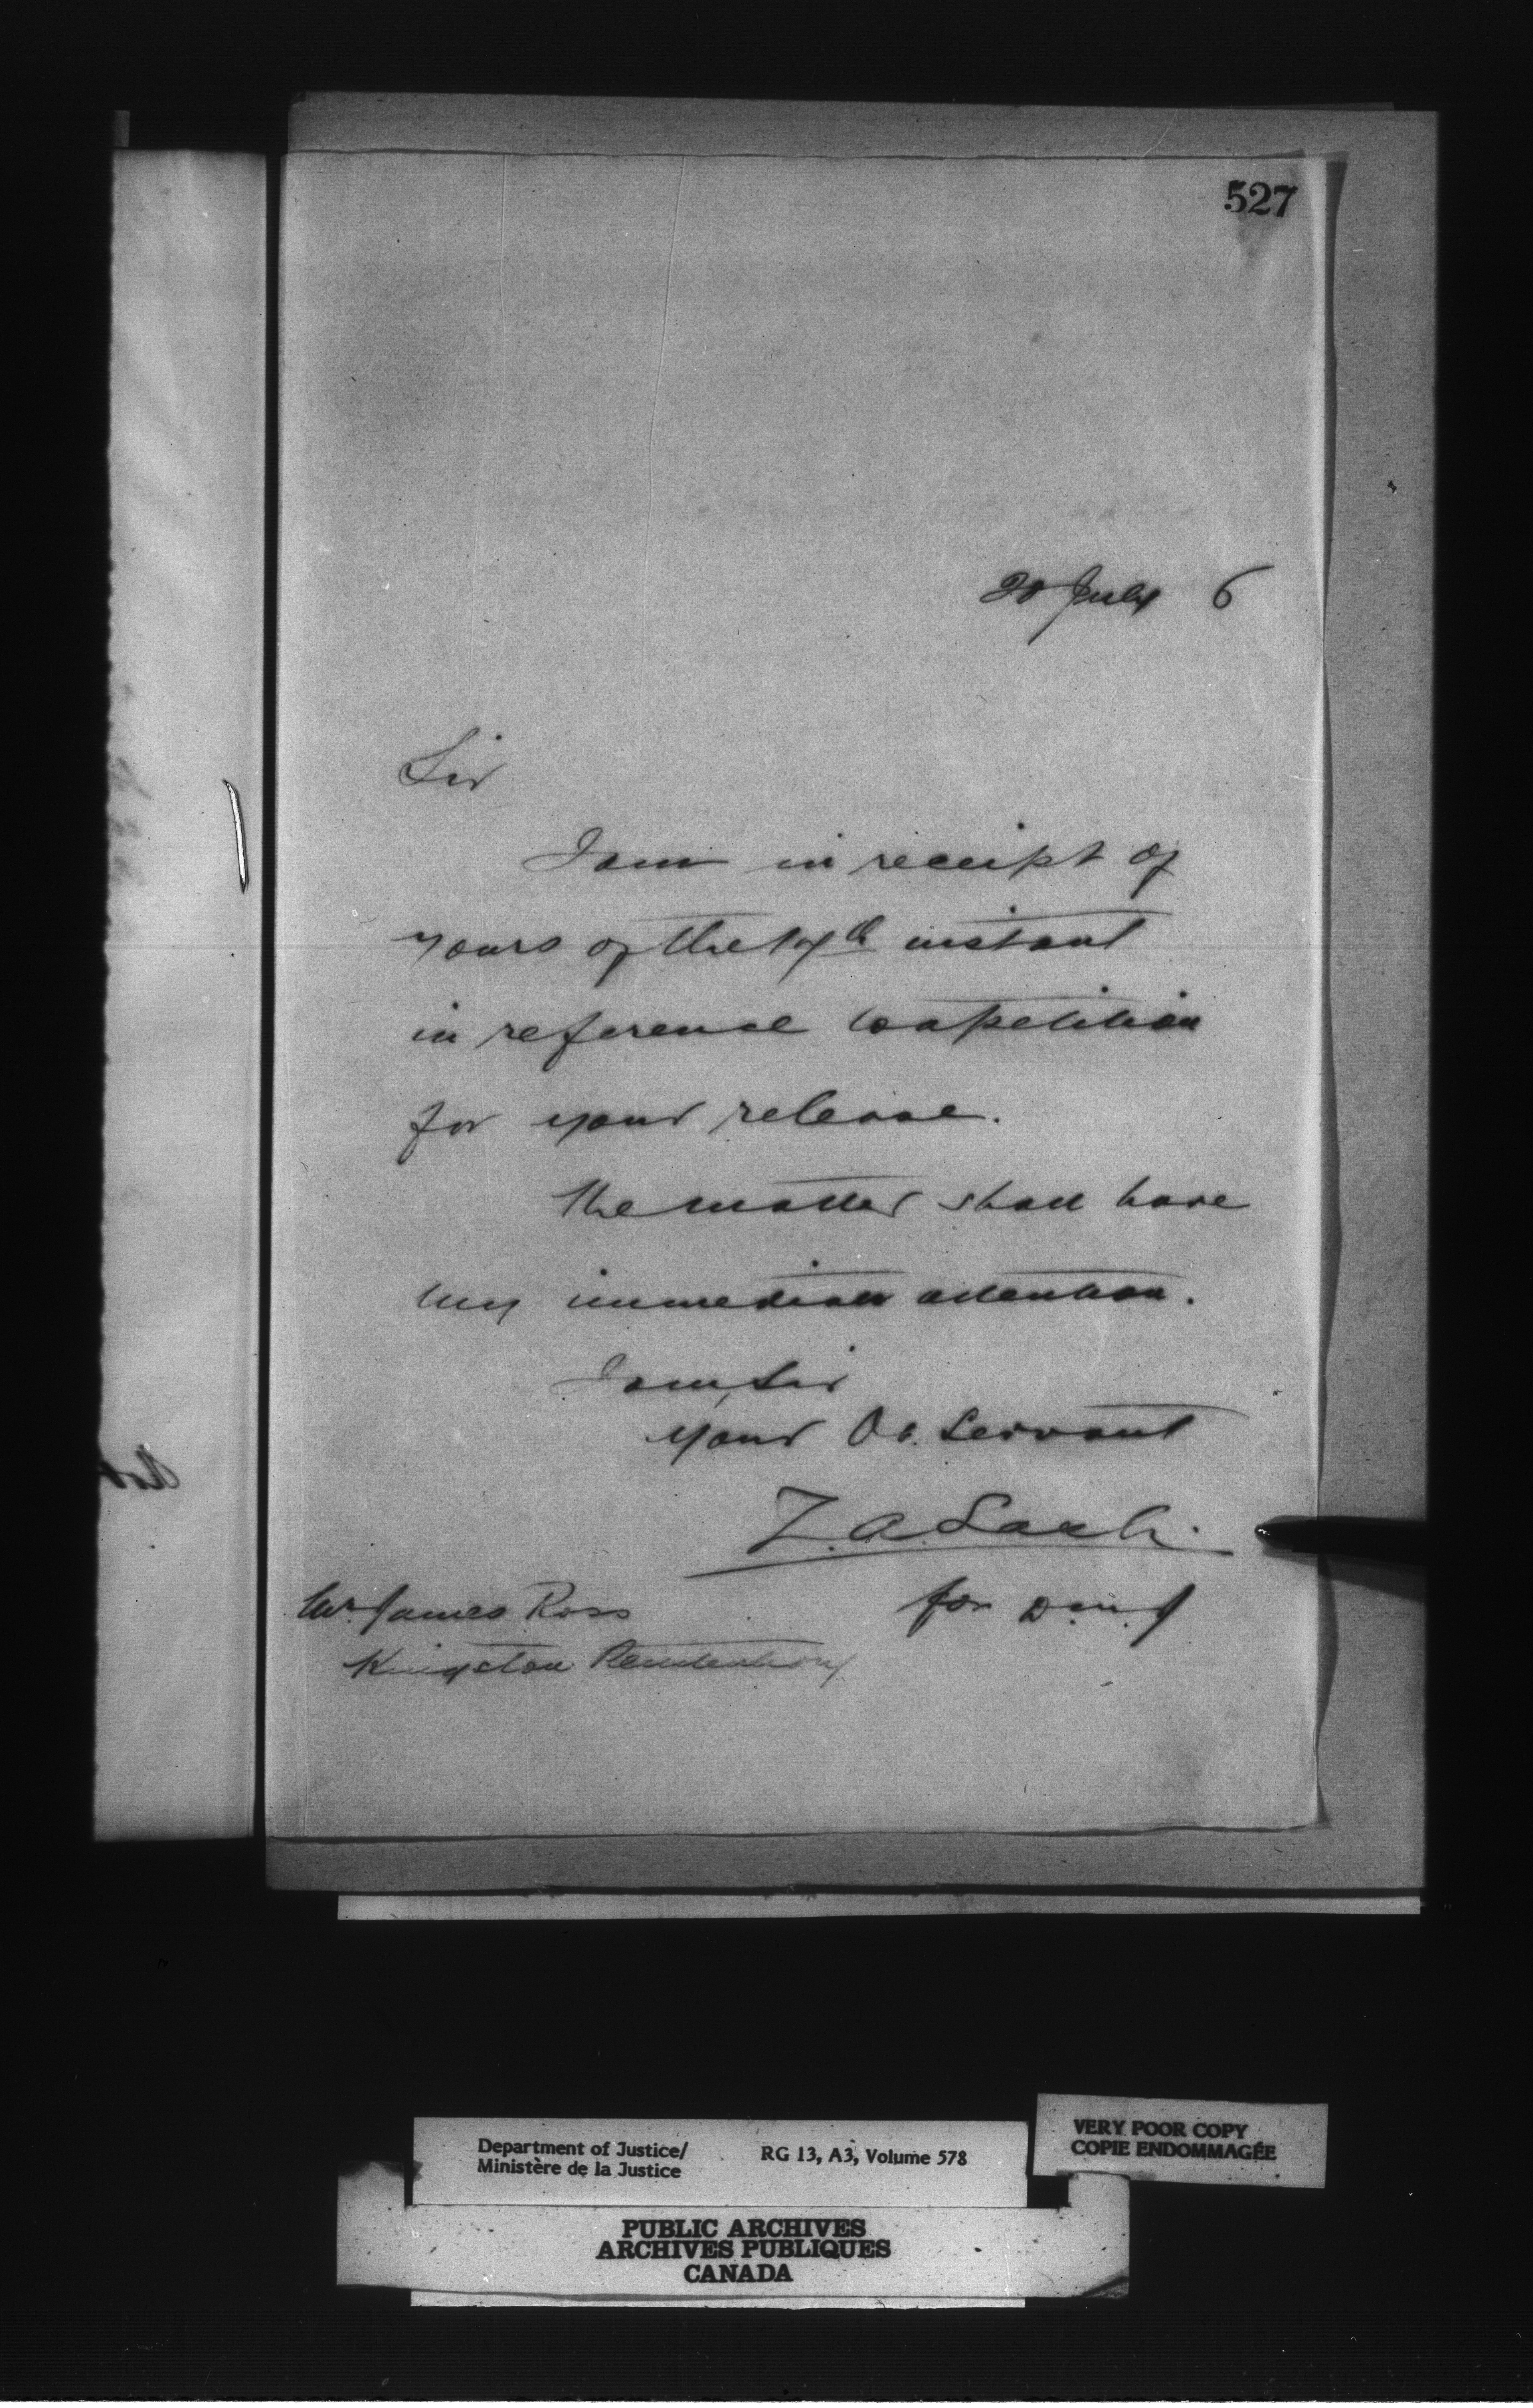 527
20 July 6
Sir
I am in receipt of
yours of the 17th instant
in reference to a petition
for your release.
The matter shall have
my immediate attention.
I am, Sir
Your Ob. Servant
Z. A. Lash.
for D.M.J
Mr James Ross
Kingston Penitentiary
Department of Justice/
Ministère de la Justice
RG 13, A3, Volume 578
VERY POOR COPY
COPIE ENDOMMAGÉE
PUBLIC ARCHIVES
ARCHIVES PUBLIQUES
CANADA